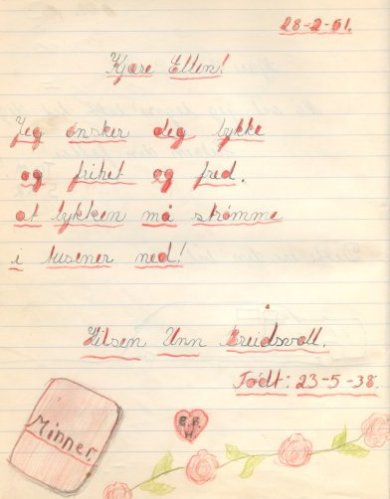 28-2-51.
Kjære Ellen!
Jeg ønsker deg lykke
og frihet og fred.
at lykken må strømme
i tusener ned!
Hilsen Unn Breidsvoll.
Født: 23-5-38.
Minner.